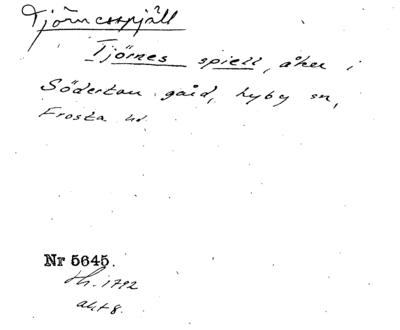 Tjörnesspjäll
Tjörnes spiell, åker i
Södertou gård, Lyby sn,
Frosta hd.
Nr 5645.
Lh. 1792
akt 8.